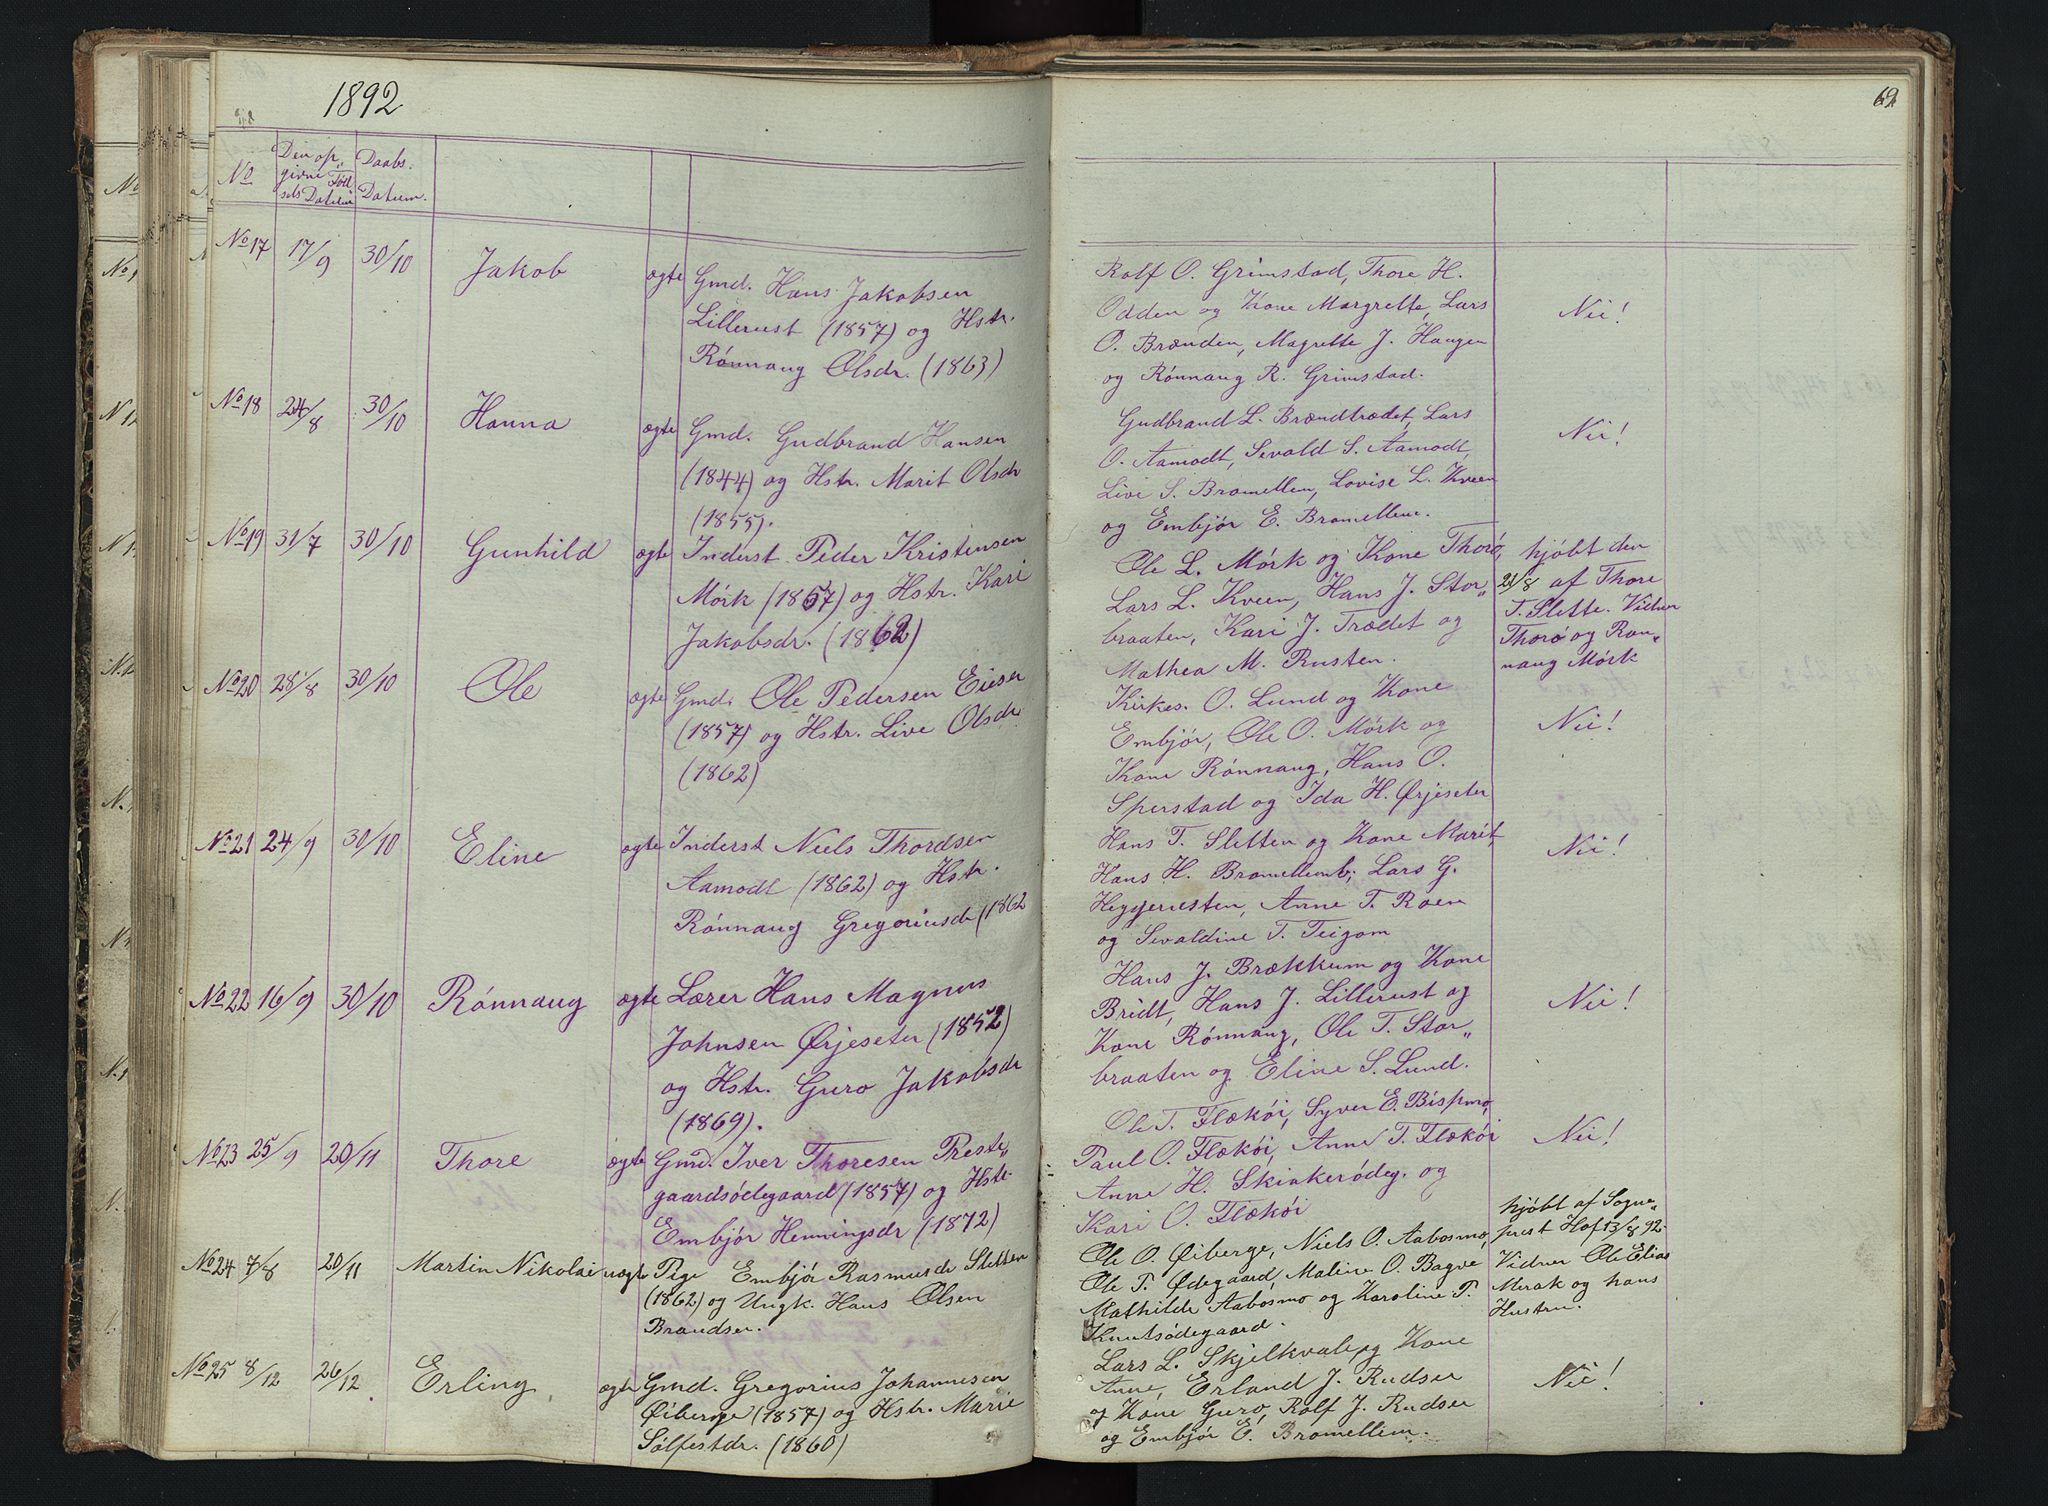 1892
69
No
Den op„
givne Fød„
sels Datum
Daabs.
Datum.
No 17 17/9 30/10 Jakob ægte Gmd. Hans Jakobsen
Lillerust (1857) og Hstr.
Rønnaug Olsdr. (1863)
Rolf O. Grimstad, Thore H.
Odden og Kone Margrette, Lars
O. Brænden, Magrette J. Haugen
og Rønnaug R. Grimstad.
Nei!
No 18 24/8 30/10 Hanna ægte Gmd. Gudbrand Hansen
(1844) og Hstr. Marit Olsdr
(1855).
Gudbrand L. Brændtrædet, Lars
O. Aamodt, Sevald S. Aamodt,
Live S. Bromellem, Lovise L. Kveen
og Embjør E. Bromellem.
Nei!
No 19 31/7 30/10 Gunhild ægte Inderst Peder Kristensen
Mørk (1857) og Hstr. Kari
Jakobsdr. (1862)
Ole L. Mørk og Kone Thorø,
Lars L. Kveen, Hans J. Stor„
braaten, Kari J. Trædet og
Mathea M. Rusten.
hjøbt den
21/8 af Thore
T. Slette. Vidner
Thorø og Ron„
naug Mørk
No 20 28/8 30/10 Ole ægte Gmd. Ole Pedersen Eiesen
(1857) og Hstr. Live Olsdr
(1862)
Kirkes. O. Lund og Kone
Embjør, Ole O. Mørk og
Kone Rønnaug, Hans O.
Sperstad og Ida H. Ørjeseter
Nei!
No 21 24/9 30/10 Eline ægte Inderst Niels Thordsen
Aamodt (1862) og Hstr.
Rønnaug Gregoriusdr (1862
Hans T. Sletten og Kone Marit,
Hans H. Bromellemb, Lars G.
Heggerusten, Anne T. Roen
og Sevaldine T. Teigom
Nei!
No 22 16/9 30/10 Rønnaug ægte Lærer Hans Magnus
Johnsen Ørjeseter (1852)
og Hstr. Guro Jakobsdr
(1869).
Hans J. Brækkum og Kone
Bridt, Hans J. Lillerust og
Kone Rønnaug, Ole T. Stor„
braaten og Eline S. Lund.
Nei!
No 23 25/9 20/11 Thore ægte Gmd. Iver Thoresen Preste„
gaardsødegaard (1857) og Hstr.
Embjør Henningsdr (1872)
Ole T. Flækøi, Syver E. Bispmo,
Paul O. Flækøi, Anne T. Flækøi
Anne H. Skinkerødeg. og
Kari O. Flækøi
Nei!
No 24 7/8 20/11 Martin Nikolai uægte Pige Embjør Rasmusdr Sletten
(1862) og Ungk. Hans Olsen
Brandser.
Ole O. Øiberge, Niels O. Aabosmo,
Ole T. Ødegaard, Maline O. Bagve
Mathilde Aabosmo og Karoline T.
Knutsødegaard.
hjøbt af Sogne„
prest Hof 13/8 92.
Vidner Ole Elias
Merak og hans
Hustru.
No 25 8/12 26/12 Erling ægte Gmd. Gregorius Johannesen
Øiberge (1857) og Hstr. Marie
Sølfestdr. (1860)
Lars L. Skjelkvale og Kone
Anne, Erland J. Rudser
og Kone Guro, Rolf J. Rudser
og Embjør E. Bromellem.
Nei!